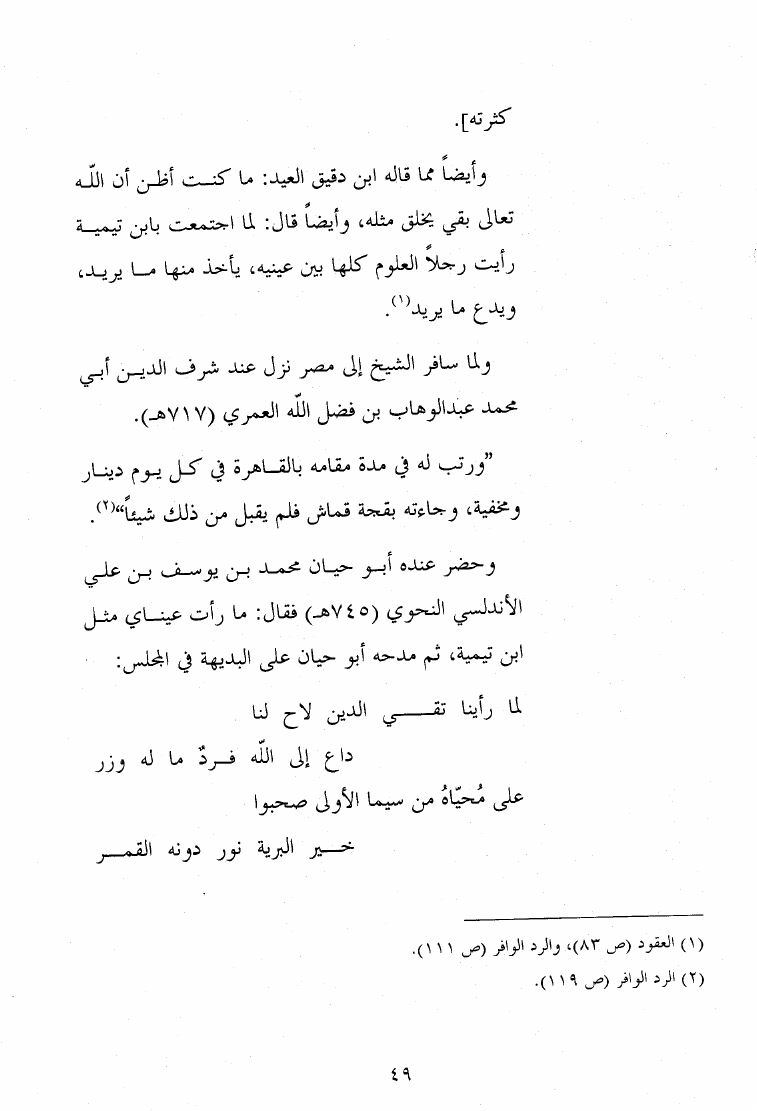 كثرته].
وأيضاً مما قاله ابن دقيق العيد: ما كنت أظن أن اللّه
تعالى بقي يخلق مثله، وأيضاً قال: لما اجتمعت بابن تيمية
رأيت رجلاً العلوم كلها بين عينيه، يأخذ منها ما يريد،
ويدع ما يريد(١).
ولما سافر الشيخ إلى مصر نزل عند شرف الدين أبي
محمد عبدالوهاب بن فضل اللّه العمري (٧١٧هـ).
”ورتب له في مدة مقامه بالقاهرة في كل يوم دينار
ومخفية، وجاءته بقجة قماش فلم يقبل من ذلك شيئاً“(٢).
وحضر عنده أبو حيان محمد بن يوسف بن علي
الأندلسي النحوي (٧٤٥هـ) فقال: ما رأت عيناي مثل
ابن تيمية، ثم مدحه أبو حيان على البديهة في المجلس:
لما رأينا تقي الدين لاح لنا
داع إلى اللّه فردٌ ما له وزر
على مُحيّاهُ من سيما الأولى صحبوا
خير البرية نور دونه القمر
(١) العقود (ص ٨٣)، والرد الوافر (ص ١١١).
(٢) الرد الوافر (ص ١١٩).
٤٩